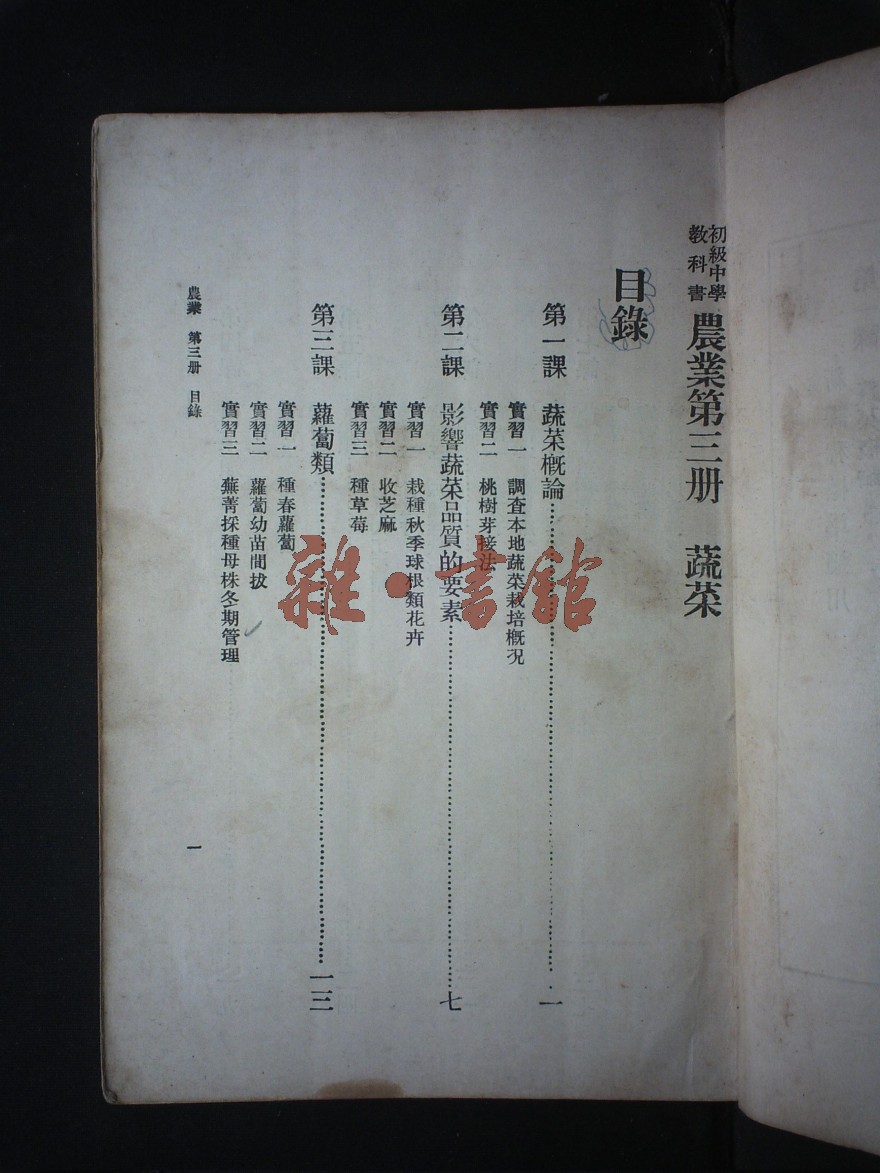 初級中學
教科書
農業第三册　蔬菜
目錄
第一課　蔬菜概論…………一
實習一　調查本地蔬菜栽培概况
實習二　桃樹芽接法
第二課　影響蔬菜品質的要素…………七
實習一　栽種秋季球根類花卉
實習二　收芝麻
實習三　種草莓
第三課　蘿蔔類…………一三
實習一　種春蘿蔔
實習二　蘿蔔幼苗間拔
實習三　蕪菁採種母株冬期管理
農業　第三册　目錄
一
雜·書館